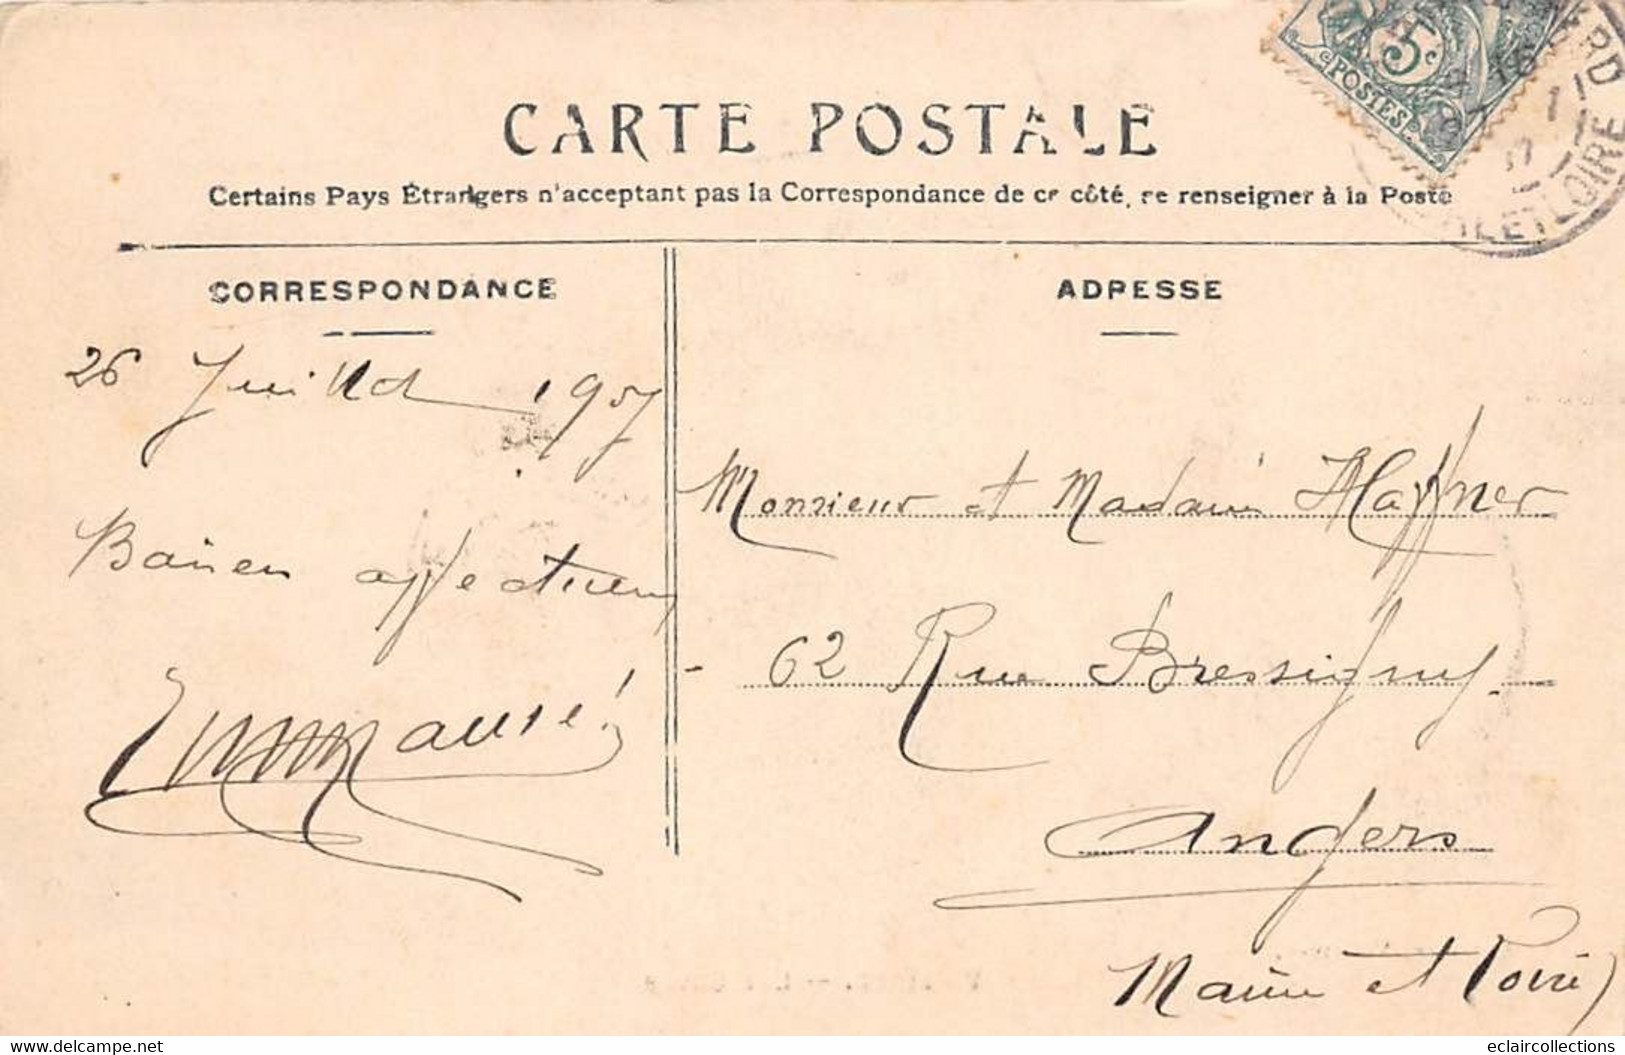 5c
POSTES
CARTE POSTALE
Certains Pays Étrangers n'acceptant pas la Correspondance de ce côté, se renseigner à la Poste
ET LOIRE
CORRESPONDANCE
ADRESSE
26 Juillet 1907
Monsieur et Madame Haffner
Baisers affectueux
62 Rue Bressigny.
Angers
Maine et Loire)
Ma collection sur www.delcampe.net
eclaircollections